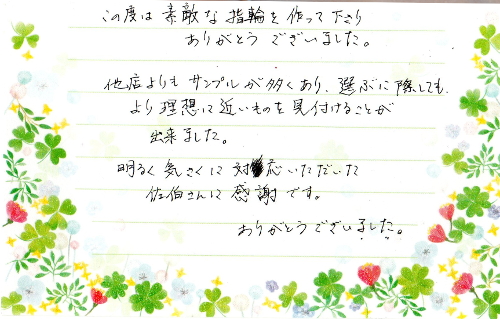 この度は素敵な指輪を作って下さり
ありがとうございました。
他店よりもサンプルが多くあり、選ぶに際しても、
より理想に近いものを見付けることが
出来ました。
明るく気さくに対応いただいた
佐伯さんに感謝です。
ありがとうございました。